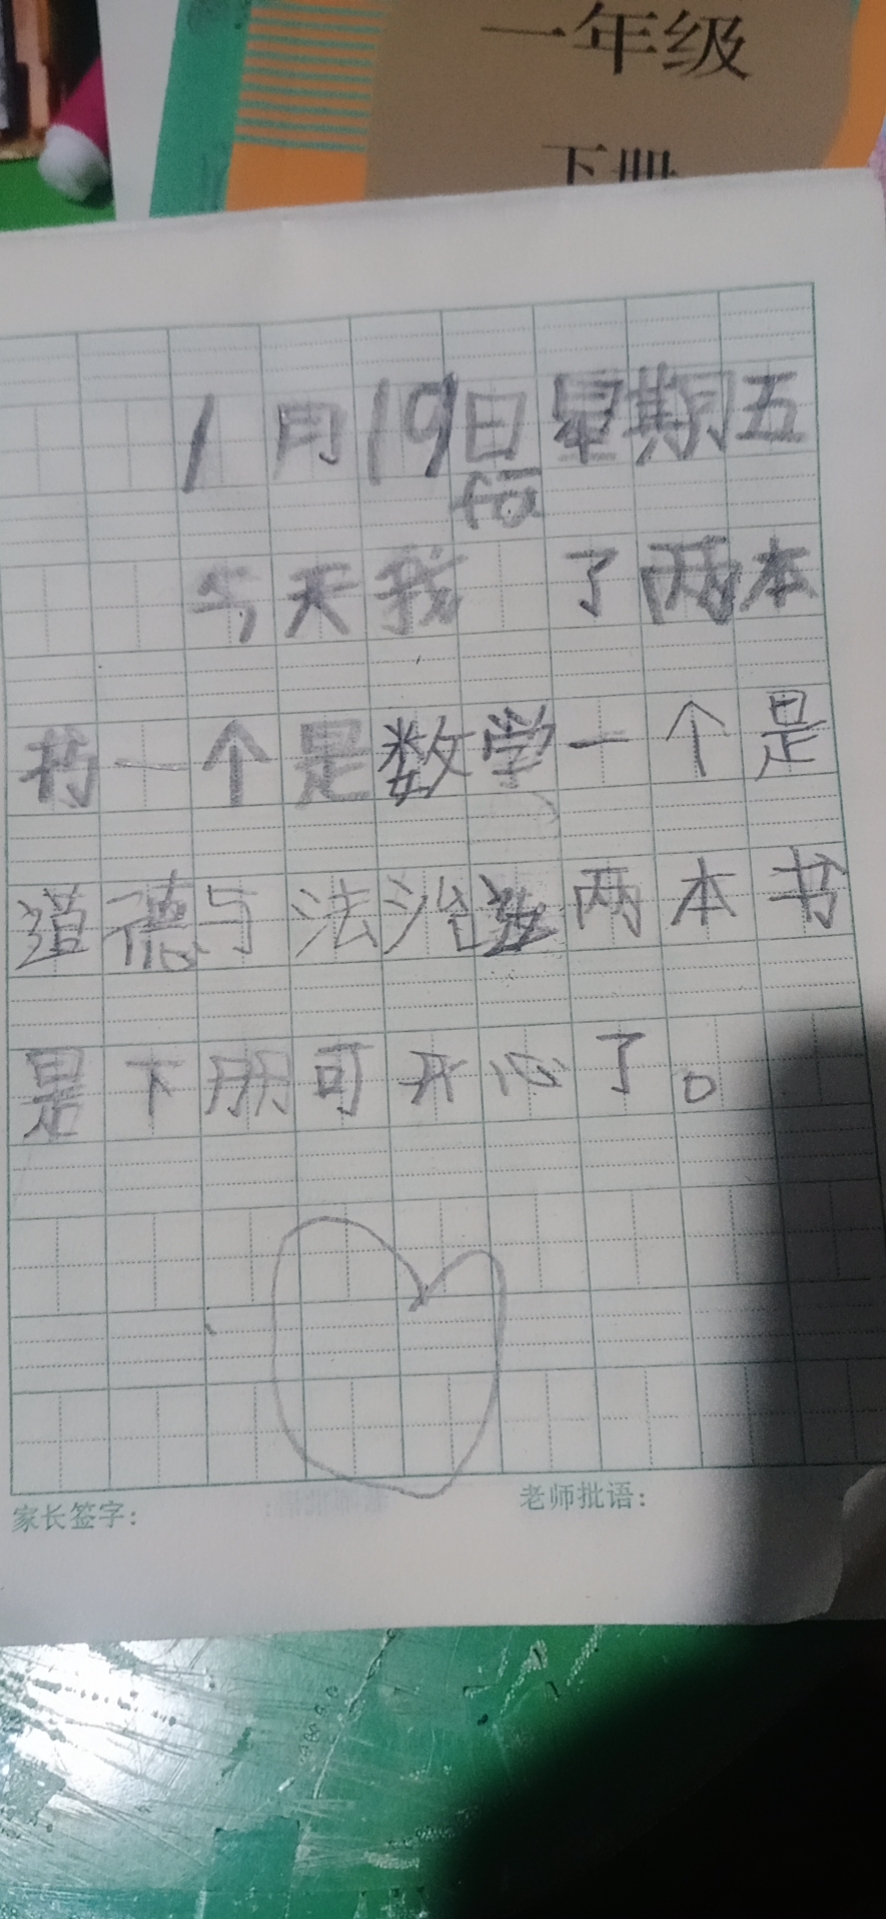 一年级
下册
1月19日星期五
fā
今天我 了两本
书一个是数学一个是
道德与法治这两本书
是下册可开心了。
家长签字：
老师批语：